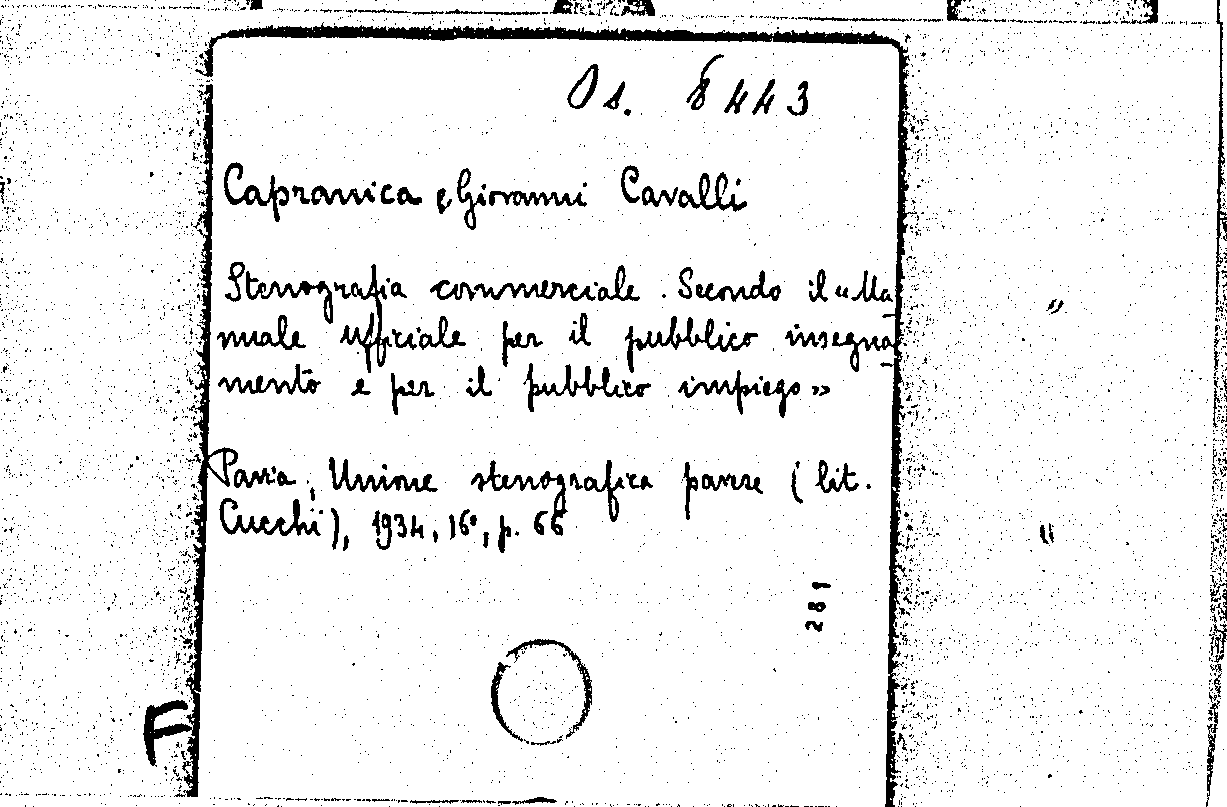 Os. 8443
Capranica e Giovanni Cavalli
Stenografia commerciale. Secondo il «Ma
nuale ufficiale per il pubblico insegna
mento e per il pubblico impiego»
Pavia, Unione stenografica pavese (lit.
Cucchi), 1934, 16°, p. 66
281
F